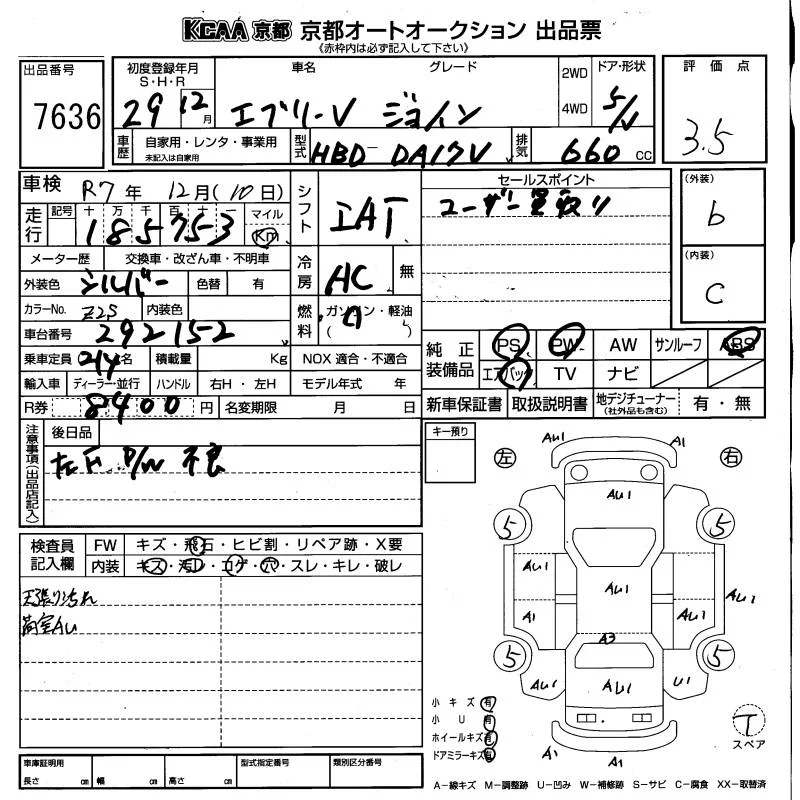 KCAA 京都 京都オートオークション 出品票
《赤枠内は必ず記入して下さい》
出品番号
7636
初度登録年月
S・H・R
29 12月
車名 グレード
エブリーV ジョイン
2WD
4WD
ドア・形状
5/V
評価点
3.5
車歴
自家用・レンタ・事業用
未記入は自家用
型式
HBD-DA17V
排気
660 cc
車検 R7年 12月(10日)
走行
記号 十 万 千 百 十 一
185753
マイル
Km
シフト
IAT
セールスポイント
ユーザー買取り
(外装)
b
(内装)
C
メーター歴 交換車・改ざん車・不明車
外装色 シルバー 色替 有
冷房
AC 無
カラーNo. Z2S 内装色
燃料
ガソリン・軽油
( )
車台番号 292152
乗車定員 2/4名 積載量 Kg NOX 適合・不適合
輸入車 ディーラー・並行 ハンドル 右H・左H モデル年式 年
R券 8400円 名変期限 月 日
純正装備品
PS PW AW サンルーフ ABS
エアバック TV ナビ
新車保証書 取扱説明書 地デジチューナー
(社外品も含む)
有・無
注意事項(出品店記入)
後日品
左F P/W 不良
キー預り
左 右
AU1 A1
AU1
5 5
AU1 AU1 AU1 AU1
A1
A3
5 5
AU1 AU1 U1
A1 A1
検査員記入欄
FW キズ・飛石・ヒビ割・リペア跡・X要
内装 キズ・汚レ・コゲ・穴・スレ・キレ・破レ
天張り汚れ
荷室AU
小キズ 有
小U 有
ホイールキズ 有
ドアミラーキズ 有
T
スペア
車庫証明用
長さ cm 幅 cm 高さ cm
型式指定番号 類別区分番号
A−線キズ M−調整跡 U−凹み W−補修跡 S−サビ C−腐食 XX−取替済